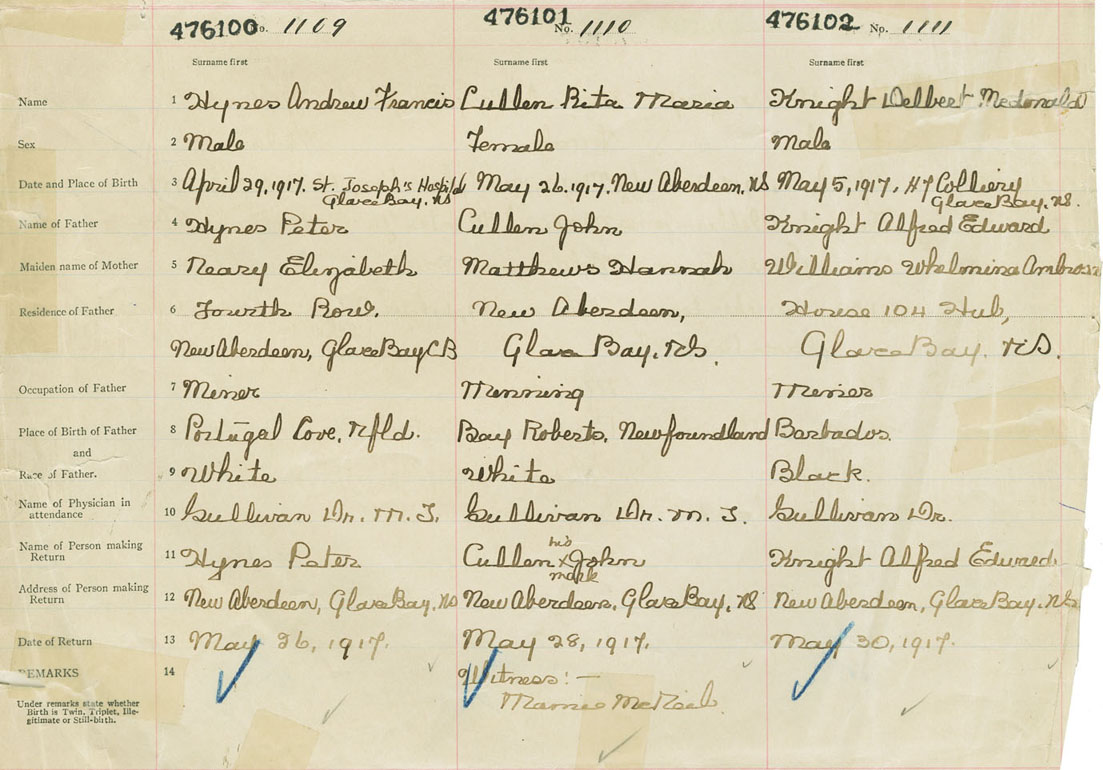 476100 No. 1109 476101 No. 1110 476102 No. 1111
Surname first Surname first Surname first
Name 1 Hynes Andrew Francis Cullen Rita Maria Knight Delbert Mcdonald
Sex 2 Male Female Male
Date and Place of Birth 3 April 29, 1917. St. Joseph's Hospital May 26, 1917. New Aberdeen, NS May 5, 1917. Colliery
Glace Bay. NS Glace Bay. NS.
Name of Father 4 Hynes Peter Cullen John Knight Alfred Edward
Maiden name of Mother 5 Neary Elizabeth Matthews Hannah Williams Whelmina
Residence of Father 6 Fourth Row. New Aberdeen, House 104 Hub,
New Aberdeen, Glace Bay CB Glace Bay, NS. Glace Bay. NS.
Occupation of Father 7 Miner Minning Miner
Place of Birth of Father 8 Portugal Cove, Nfld. Bay Roberts, Newfoundland Barbados.
and
Race of Father. 9 White White Black.
Name of Physician in
attendance 10 Sullivan Dr. M. T. Sullivan Dr. M. T. Sullivan Dr.
Name of Person making
Return 11 Hynes Peter Cullen his x mark John Knight Alfred Edward
Address of Person making
Return 12 New Aberdeen, Glace Bay, NS New Aberdeen, Glace Bay, NS New Aberdeen, Glace Bay. NS.
Date of Return 13 May 26, 1917. May 28, 1917. May 30, 1917.
REMARKS 14 Witness:-
Under remarks state whether
Birth is Twin, Triplet, Ille-
gitimate or Still-birth.
Mamie McNeil